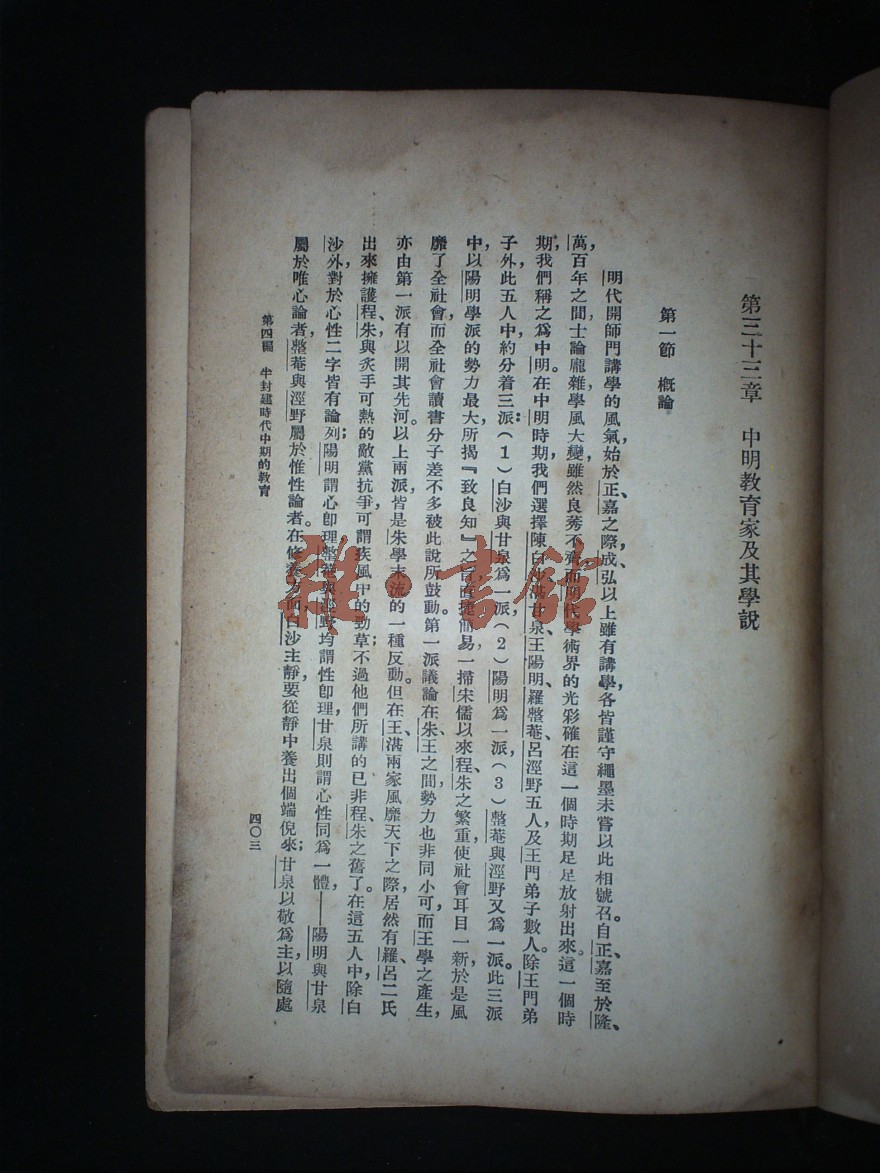 第三十三章　中明教育家及其學說
第一節　概論
明代開師門講學的風氣，始於正、嘉之際，成、弘以上雖有講學，各皆謹守繩墨，未嘗以此相號召。自正、嘉至於隆、
萬，百年之間，士論龐雜，學風大變，雖然良莠不齊，而明代學術界的光彩確在這一個時期足足放射出來。這一個時
期，我們稱之爲中明。在中明時期，我們選擇陳白沙、湛甘泉、王陽明、羅整菴、呂涇野五人，及王門弟子數人。除王門弟
子外，此五人中約分着三派：(1)白沙與甘泉爲一派，(2)陽明爲一派，(3)整菴與涇野又爲一派。此三派
中，以陽明學派的勢力最大，所揭『致良知』之旨，直捷簡易，一掃宋儒以來程、朱之繁重，使社會耳目一新，於是風
靡了全社會，而全社會讀書分子差不多被此說所鼓動。第一派議論在朱、王之間，勢力也非同小可，而王學之產生，
亦由第一派有以開其先河。以上兩派，皆是朱學末流的一種反動。但在王、湛兩家風靡天下之際，居然有羅、呂二氏
出來擁護程、朱，與炙手可熱的敵黨抗爭，可謂疾風中的勁草；不過他們所講的已非程、朱之舊了。在這五人中，除白
沙外，對於心性二字皆有論列；陽明謂心卽理，整菴與涇野均謂性卽理，甘泉則謂心性同爲一體——陽明與甘泉
屬於唯心論者，整菴與涇野屬於惟性論者。在修養方面，白沙主靜，要從靜中養出個端倪來；甘泉以敬爲主，以隨處
第四編　半封建時代中期的教育
四〇三
雜·書館